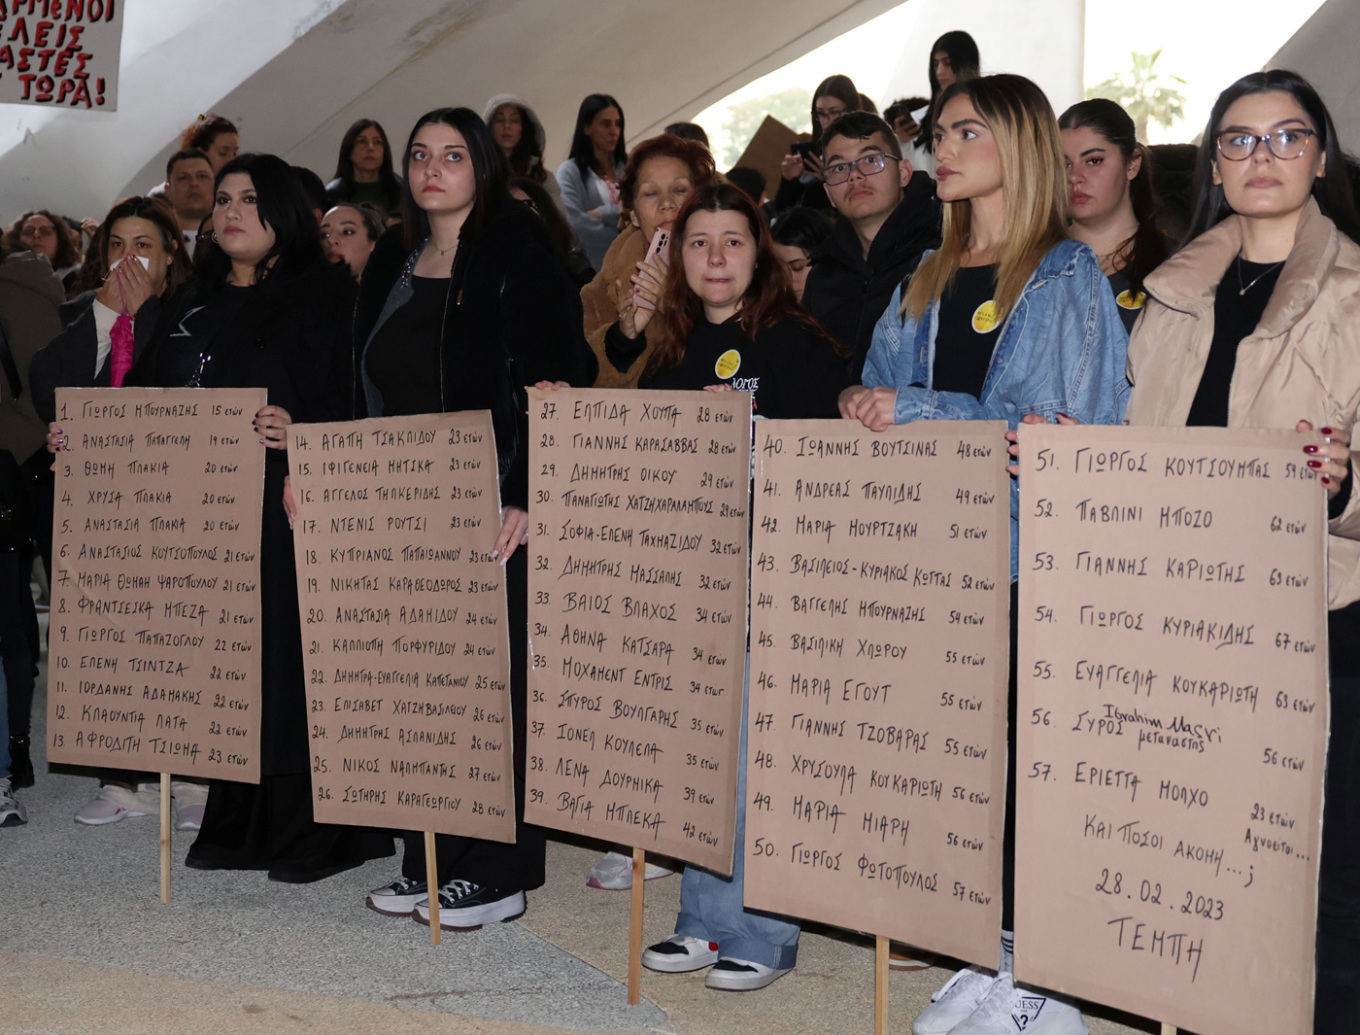 ΕΛΕΙΣ
ΤΩΡΑ!
1. ΓΙΩΡΓΟΣ ΜΠΟΥΡΝΑΖΗΣ 15 ετών
2. ΑΝΑΣΤΑΣΙΑ ΠΑΠΑΓΓΕΛΗ 19 ετών
3. ΘΩΜΗ ΠΛΑΚΙΑ 20 ετών
4. ΧΡΥΣΑ ΠΛΑΚΙΑ 20 ετών
5. ΑΝΑΣΤΑΣΙΑ ΠΛΑΚΙΑ 20 ετών
6. ΑΝΑΣΤΑΣΙΟΣ ΚΟΥΤΣΟΠΟΥΛΟΣ 21 ετών
7. ΜΑΡΙΑ ΘΩΜΑΗ ΨΑΡΟΠΟΥΛΟΥ 21 ετών
8. ΦΡΑΝΤΣΕΣΚΑ ΜΠΕΖΑ 21 ετών
9. ΓΙΩΡΓΟΣ ΠΑΠΑΖΟΓΛΟΥ 22 ετών
10. ΕΛΕΝΗ ΤΣΙΝΤΖΑ 22 ετών
11. ΙΟΡΔΑΝΗΣ ΑΔΑΜΑΚΗΣ 22 ετών
12. ΚΛΑΟΥΝΤΙΑ ΛΑΤΑ 22 ετών
13. ΑΦΡΟΔΙΤΗ ΤΣΙΩΜΑ 23 ετών
14. ΑΓΑΠΗ ΤΣΑΚΛΙΔΟΥ 23 ετών
15. ΙΦΙΓΕΝΕΙΑ ΜΗΤΣΚΑ 23 ετών
16. ΑΓΓΕΛΟΣ ΤΗΛΚΕΡΙΔΗΣ 23 ετών
17. ΝΤΕΝΙΣ ΡΟΥΤΣΙ 23 ετών
18. ΚΥΠΡΙΑΝΟΣ ΠΑΠΑΙΩΑΝΝΟΥ 23 ετών
19. ΝΙΚΗΤΑΣ ΚΑΡΑΘΕΟΔΩΡΟΣ 23 ετών
20. ΑΝΑΣΤΑΣΙΑ ΑΔΑΜΙΔΟΥ 24 ετών
21. ΚΑΛΛΙΟΠΗ ΠΟΡΦΥΡΙΔΟΥ 24 ετών
22. ΔΗΜΗΤΡΑ-ΕΥΑΓΓΕΛΙΑ ΚΑΠΕΤΑΝΙΟΥ 25 ετών
23. ΕΛΙΣΑΒΕΤ ΧΑΤΖΗΒΑΣΙΛΕΙΟΥ 26 ετών
24. ΔΗΜΗΤΡΗΣ ΑΣΛΑΝΙΔΗΣ 26 ετών
25. ΝΙΚΟΣ ΝΑΛΜΠΑΝΤΗΣ 27 ετών
26. ΣΩΤΗΡΗΣ ΚΑΡΑΓΕΩΡΓΙΟΥ 28 ετών
27. ΕΛΠΙΔΑ ΧΟΥΠΑ 28 ετών
28. ΓΙΑΝΝΗΣ ΚΑΡΑΣΑΒΒΑΣ 28 ετών
29. ΔΗΜΗΤΡΗΣ ΟΙΚΟΥ 29 ετών
30. ΠΑΝΑΓΙΩΤΗΣ ΧΑΤΖΗΧΑΡΑΛΑΜΠΟΥΣ 29 ετών
31. ΣΟΦΙΑ-ΕΛΕΝΗ ΤΑΧΜΑΖΙΔΟΥ 32 ετών
32. ΔΗΜΗΤΡΗΣ ΜΑΣΣΑΛΗΣ 32 ετών
33. ΒΑΙΟΣ ΒΛΑΧΟΣ 34 ετών
34. ΑΘΗΝΑ ΚΑΤΣΑΡΑ 34 ετών
35. ΜΟΧΑΜΕΝΤ ΕΝΤΡΙΣ 34 ετών
36. ΣΠΥΡΟΣ ΒΟΥΛΓΑΡΗΣ 35 ετών
37. ΙΟΝΕΛ ΚΟΥΛΕΛΑ 35 ετών
38. ΛΕΝΑ ΔΟΥΡΜΙΚΑ 39 ετών
39. ΒΑΓΙΑ ΜΠΛΕΚΑ 42 ετών
40. ΙΩΑΝΝΗΣ ΒΟΥΤΣΙΝΑΣ 48 ετών
41. ΑΝΔΡΕΑΣ ΠΑΥΛΙΔΗΣ 49 ετών
42. ΜΑΡΙΑ ΜΟΥΡΤΖΑΚΗ 51 ετών
43. ΒΑΣΙΛΕΙΟΣ-ΚΥΡΙΑΚΟΣ ΚΩΤΤΑΣ 52 ετών
44. ΒΑΓΓΕΛΗΣ ΜΠΟΥΡΝΑΖΗΣ 54 ετών
45. ΒΑΣΙΛΙΚΗ ΧΛΩΡΟΥ 55 ετών
46. ΜΑΡΙΑ ΕΓΟΥΤ 55 ετών
47. ΓΙΑΝΝΗΣ ΤΖΟΒΑΡΑΣ 55 ετών
48. ΧΡΥΣΟΥΛΑ ΚΟΥΚΑΡΙΩΤΗ 56 ετών
49. ΜΑΡΙΑ ΜΙΑΡΗ 56 ετών
50. ΓΙΩΡΓΟΣ ΦΩΤΟΠΟΥΛΟΣ 57 ετών
51. ΓΙΩΡΓΟΣ ΚΟΥΤΣΟΥΜΠΑΣ 59 ετών
52. ΠΑΒΛΙΝΙ ΜΠΟΖΟ 62 ετών
53. ΓΙΑΝΝΗΣ ΚΑΡΙΩΤΗΣ 63 ετών
54. ΓΙΩΡΓΟΣ ΚΥΡΙΑΚΙΔΗΣ 67 ετών
55. ΕΥΑΓΓΕΛΙΑ ΚΟΥΚΑΡΙΩΤΗ 63 ετών
56. ΣΥΡΟΣ Ibrahim Masri μετανάστης 56 ετών
57. ΕΡΙΕΤΤΑ ΜΟΛΧΟ 23 ετών
Αγνοείται...
ΚΑΙ ΠΟΣΟΙ ΑΚΟΜΗ...;
28.02.2023
ΤΕΜΠΗ